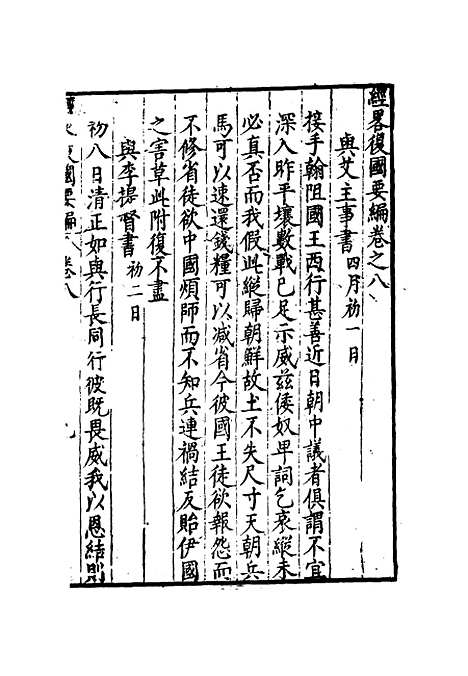 經畧復國要編卷之八
與艾主事書 四月初一日
接手翰阻國王西行甚善近日朝中議者俱謂不宜
深入昨平壤數戰已足示威茲倭奴卑詞乞哀縱未
必真否而我假此縱歸朝鮮故土不失尺寸天朝兵
馬可以速還錢糧可以減省今彼國王徒欲報怨而
不修省徒欲中國煩師而不知兵連禍結反貽伊國
之害草此附復不盡
與李提督書 初二日
初八日清正如與行長同行彼既畏威我以恩結則
國要編 卷八